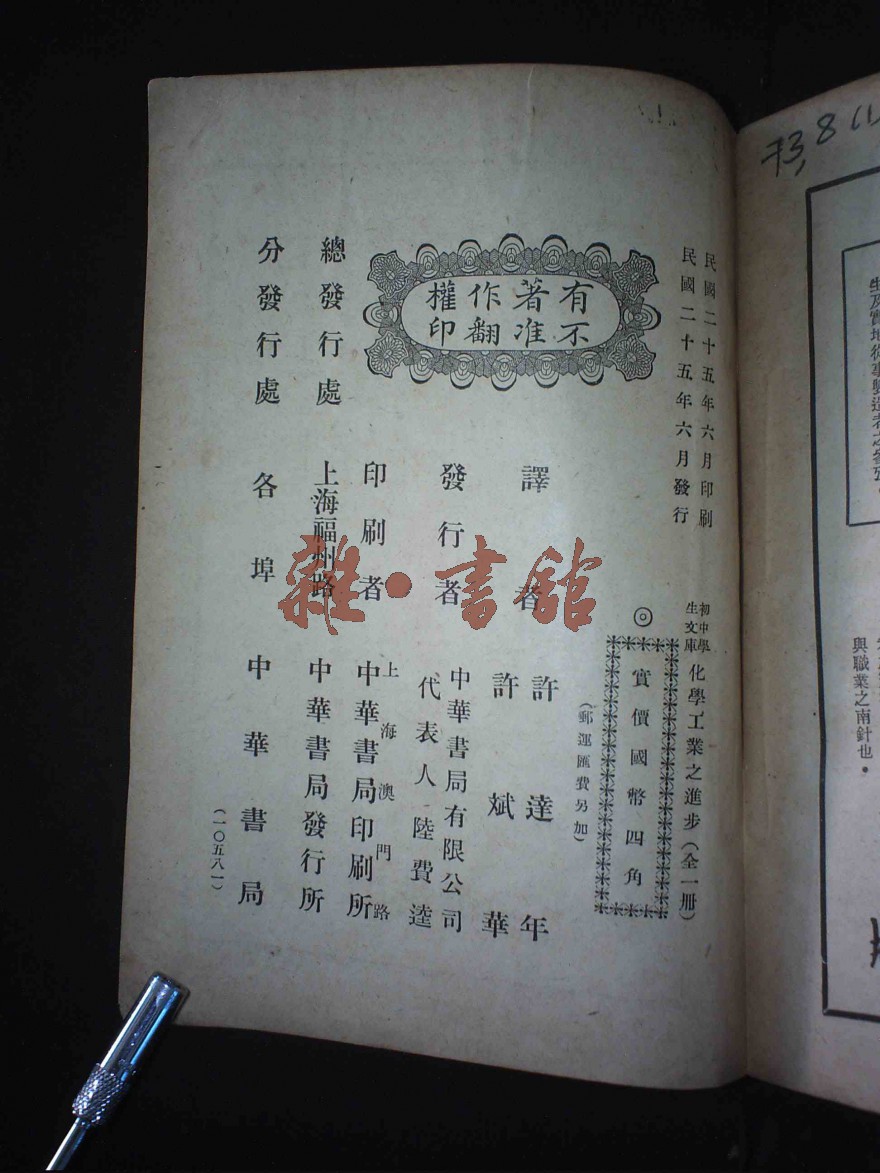 民國二十五年六月印刷
民國二十五年六月發行
初中學生文庫 化學工業之進步(全一册)
◎實價國幣四角
(郵運匯費另加)
有著作權
不准翻印
譯者 許達年
許斌華
發行者 中華書局有限公司
代表人 陸費逵
印刷者 上海澳門路
中華書局印刷所
總發行處 上海福州路 中華書局發行所
分發行處 各埠 中華書局
(一〇五八一)
雜·書館
8
生及實地從事
與職業之南針也。